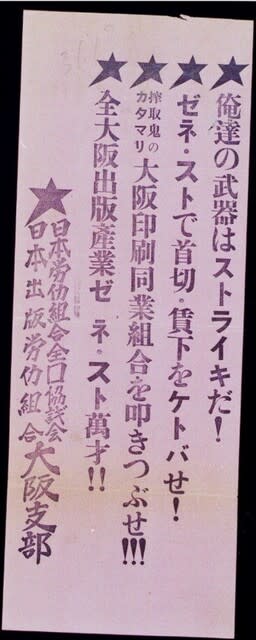 ★俺達の武器はストライキだ！
★ゼネ・ストで首切・賃下をケトバせ！
★搾取鬼のカタマリ大阪印刷同業組合を叩きつぶせ!!!
★全大阪出版産業ゼネ・スト萬才!!
★日本労仂組合全口協議会
日本出版労仂組合大阪支部